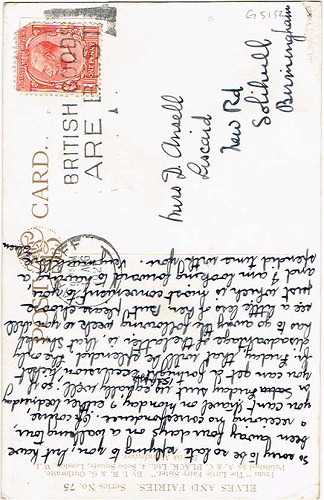 G5157
BRITISH
GOODS
ARE
POST CARD.
Miss D. Ansell
Liscaid
New Rd
Solihull
Birmingham
ELVES AND FAIRIES Series No. 75
From "The Little Fairy Sister." By I. R. & G. Outhwaite
Published by A. & C. BLACK, Ltd., 4, Soho Square, London, W.1
So sorry to be so late replying to yours, but have
been away four days on a walking tour,
receiving no correspondence. Of course
you can't travel on
but Friday will suit us equally well, so if
you can get a good train or excursion,
on Friday, that will be splendid. The only
disadvantage of the latter is, that I shall
have to go away the following week so shall
see a little less of you. But please choose
just which is most convenient for you
and I am looking forward to having a
splendid time with you.